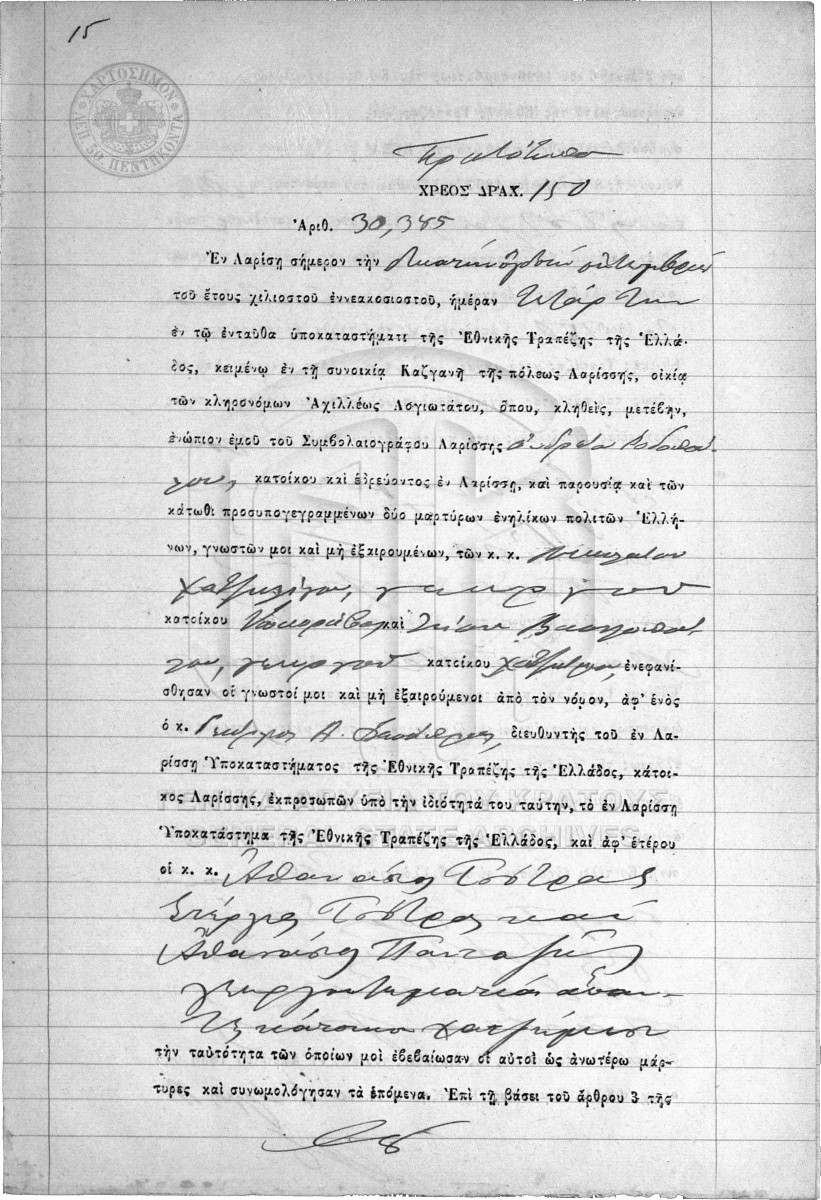 15
ΧΑΡΤΟΣΗΜΟΝ
ΛΕΠ. 50. ΠΕΝΤΗΚΟΝΤΑ
Πρωτότυπον
ΧΡΕΟΣ ΔΡΑΧ. 150
Ἀριθ. 30,385
Ἐν Λαρίσῃ σήμερον τὴν εἰκοστὴν ὀγδόην
τοῦ ἔτους χιλιοστοῦ ἐννεακοσιοστοῦ, ἡμέραν Τετάρτην
ἐν τῷ ἐνταῦθα ὑποκαταστήματι τῆς Ἐθνικῆς Τραπέζης τῆς Ἑλλά-
δος, κειμένῳ ἐν τῇ συνοικίᾳ Καζγανῆ τῆς πόλεως Λαρίσσης, οἰκίᾳ
τῶν κληρονόμων Ἀχιλλέως Λογιωτάτου, ὅπου, κληθεὶς, μετέβην,
ἐνώπιον ἐμοῦ τοῦ Συμβολαιογράφου Λαρίσσης Ἀνδρέα Ροδοπού-
λου, κατοίκου καὶ ἑδρεύοντος ἐν Λαρίσσῃ, καὶ παρουσίᾳ καὶ τῶν
κάτωθι προσυπογεγραμμένων δύο μαρτύρων ἐνηλίκων πολιτῶν Ἑλλή-
νων, γνωστῶν μοι καὶ μὴ ἐξαιρουμένων, τῶν κ. κ. Νικολάου
γεωργοῦ
κατοίκου καὶ
γεωργοῦ κατοίκου ἐνεφανί-
σθησαν οἱ γνωστοί μοι καὶ μὴ ἐξαιρούμενοι ἀπὸ τὸν νόμον, ἀφ' ἑνὸς
ὁ κ. Γεώργιος Α. διευθυντὴς τοῦ ἐν Λα-
ρίσσῃ Ὑποκαταστήματος τῆς Ἐθνικῆς Τραπέζης τῆς Ἑλλάδος, κάτοι-
κος Λαρίσσης, ἐκπροσωπῶν ὑπὸ τὴν ἰδιότητά του ταύτην, τὸ ἐν Λαρίσσῃ
Ὑποκατάστημα τῆς Ἐθνικῆς Τραπέζης τῆς Ἑλλάδος, καὶ ἀφ' ἑτέρου
οἱ κ. κ. Ἀθανάσιος Τσότρας
Στέργιος Τσότρας καὶ
Ἀθανάσιος Πανταζῆς
κάτοικοι
τὴν ταὐτότητα τῶν ὁποίων μοὶ ἐβεβαίωσαν οἱ αὐτοὶ ὡς ἀνωτέρω μάρ-
τυρες καὶ συνωμολόγησαν τὰ ἑπόμενα. Ἐπὶ τῇ βάσει τοῦ ἄρθρου 3 τῆς
ΓΕΝΙΚΑ ΑΡΧΕΙΑ ΤΟΥ ΚΡΑΤΟΥΣ
GENERAL STATE ARCHIVES